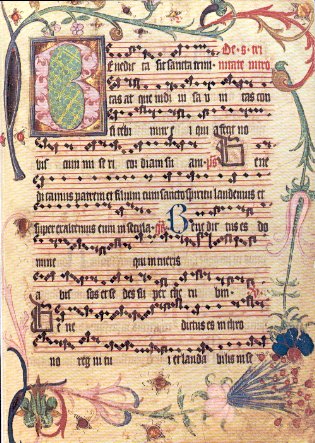 De s tri
Benedicta sit sancta trini nitate intro
tas at que indi ui sa v ni tas con
fi tebi mur e i qui a fecit no
bis cum mi se ri cor diam su am ps Bene
dicamus patrem et filium cum sancto spiritu laudemus et
super exaltemus eum in secula Bene dic tus es do
mine qui intueris
a bis sos et se des su per che ru bin
Be ne dictus es in thro
no reg ni tu i et lauda bilis in se